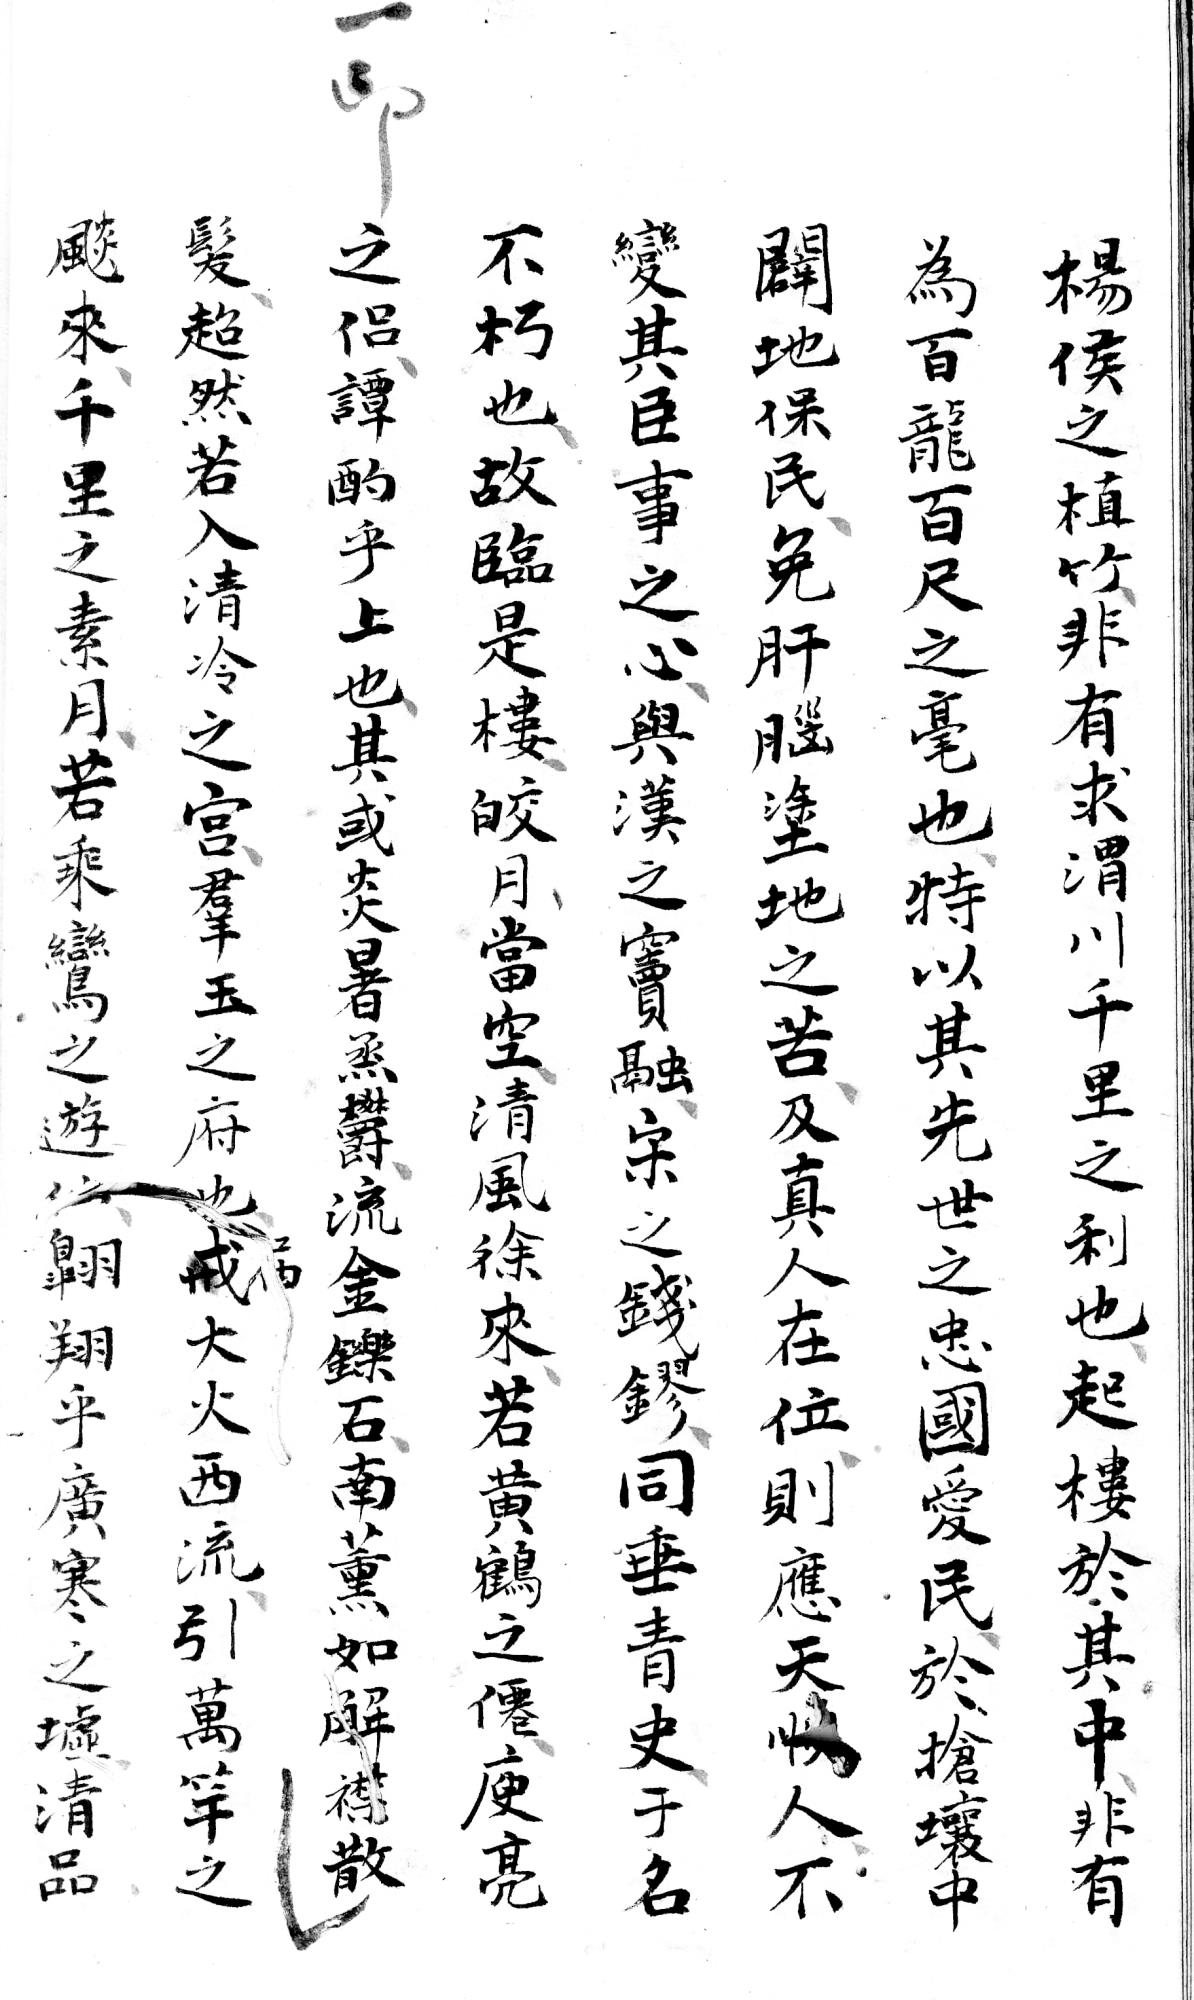 楊侯之植竹非有求渭川千里之利也起樓於其中非有
為百龍百尺之毫也特以其先世之忠國愛民於搶壤中
闢地保民免肝腦塗地之苦及真人在位則應天順人不
變其臣事之心與漢之竇融宋之錢鏐同垂青史于名
不朽也故臨是樓皎月當空清風徐來若黃鶴之僊庾亮
之侶譚酌乎上也其或炎暑烝鬱流金鑠石南薰如解襟散
髮超然若入清冷之宮羣玉之府也戒大火西流引萬竿之
颷來千里之素月若乘鸞之遊仙翺翔乎廣寒之墟清品